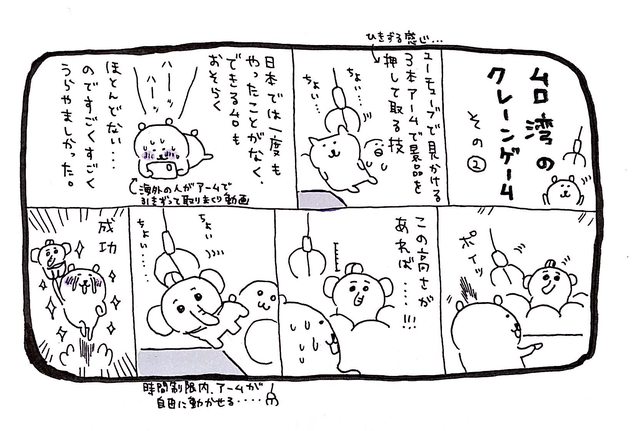 台湾の
クレーンゲーム
その②
ひきずる感じ…
ユーチューブで見かける
3本アームで景品を
押して取る技
ちょい…
ちょい…
日本では一度も
やったことがなく、
できるムロも
おそらく
ほとんどない…
のですごくすごく
うらやましかった。
ハーッ
ハーッ
海外の人がアームで
引きずって取りまくり動画
ポイッ
この高さが
あれば…!!!
ちょい…
ちょい…
時間制限内、アームが
自由に動かせる…
成功